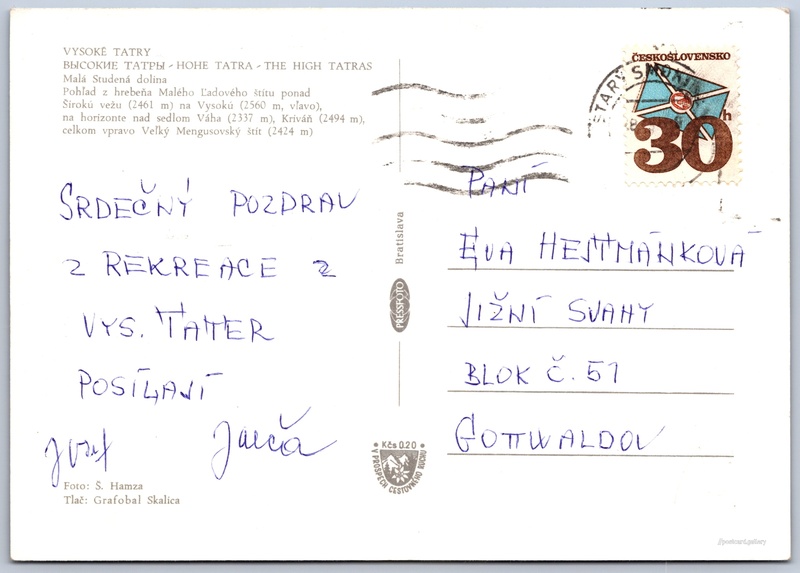 VYSOKÉ TATRY
ВЫСОКИЕ ТАТРЫ - HOHE TATRA - THE HIGH TATRAS
Malá Studená dolina
Pohľad z hrebeňa Malého Ľadového štítu ponad
Širokú vežu (2461 m) na Vysokú (2560 m, vľavo),
na horizonte nad sedlom Váha (2337 m), Kriváň (2494 m),
celkom vpravo Veľký Mengusovský štít (2424 m)
SRDEČNÝ POZDRAV
Z REKREACE Z
VYS. TATER
POSÍLAJÍ
Jozef
Foto: Š. Hamza
Tlač: Grafobal Skalica
Bratislava
PRESSFOTO
Kčs 0.20
V PROSPECH CESTOVNÉHO RUCHU
ČESKOSLOVENSKO
30h
STARÝ SMOKOVEC
PANÍ
EVA HEJTMÁNKOVÁ
JIŽNÍ SVAHY
BLOK Č. 51
GOTTWALDOV
postcard.gallery